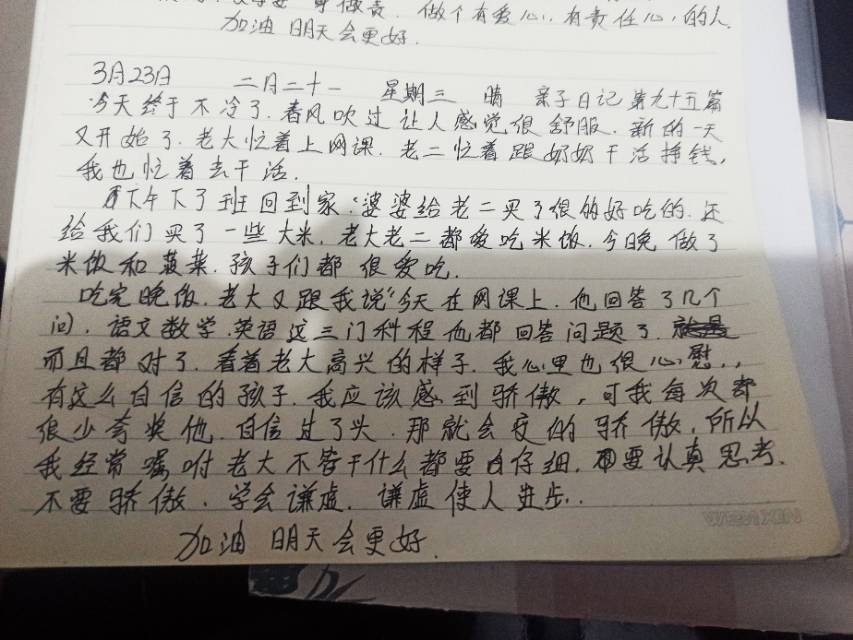 做个有爱心,有责任心,的人.
加油 明天会更好.
3月23日 二月二十一 星期三 晴 亲子日记第九十五篇
今天终于不冷了.春风吹过让人感觉很舒服.新的一天
又开始了.老大忙着上网课.老二忙着跟奶奶干活挣钱,
我也忙着去干活.
下午下了班回到家.婆婆给老二买了很多好吃的.还
给我们买了一些大米.老大老二都爱吃米饭.今晚做了
米饭和菠菜.孩子们都很爱吃.
吃完晚饭.老大又跟我说"今天在网课上.他回答了几个
问.语文数学.英语这三门科程他都回答问题了.
而且都对了.看着老大高兴的样子.我心里也很心慰..
有这么自信的孩子.我应该感到骄傲,可我每次都
很少夸奖他.自信过了头.那就会变的骄傲,所以
我经常嘱咐老大不管干什么都要仔细.都要认真思考.
不要骄傲.学会谦虚.谦虚使人进步..
加油 明天会更好.